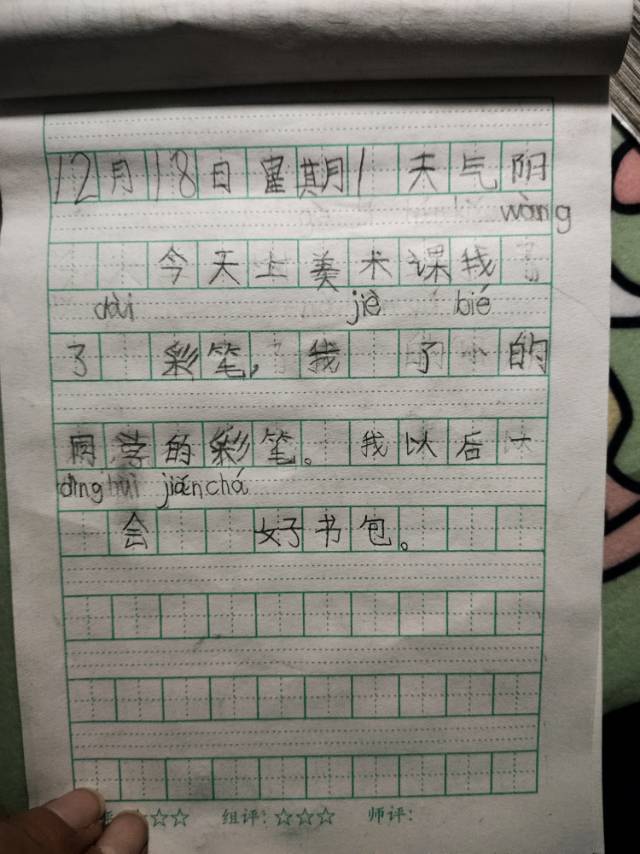 12月18日星期1 天气阴
wàng
今天上美术课我
dài jiè bié
了 彩笔，我 了 的
同学的彩笔。我以后一
dìng huì jiǎn chá
会 好书包。
组评：☆☆☆ 师评：